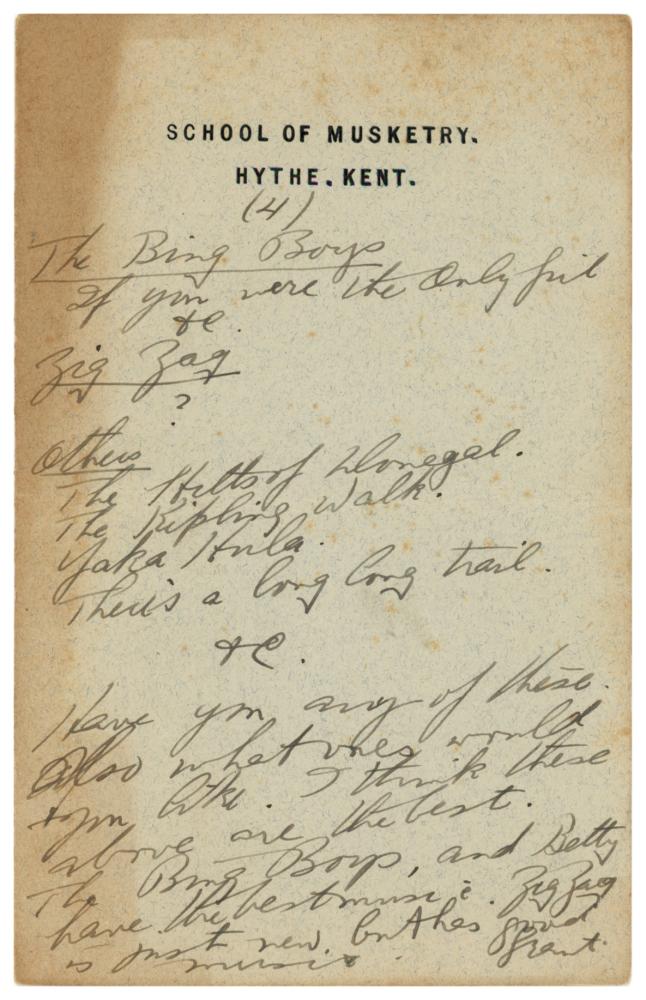 SCHOOL OF MUSKETRY.
HYTHE. KENT.
(4)
The Bing Boys
If you were the Only girl
&C.
Zig Zag
?
Others
The Hills of Donegal.
The Kipling Walk.
Yaka Hula.
There's a long long trail.
&C.
Have you any of these.
Also what ones would
you like. I think these
above are the best.
The Bing Boys, and Betty
have the best music. Zig Zag
is just new. but has good
music. Grant.